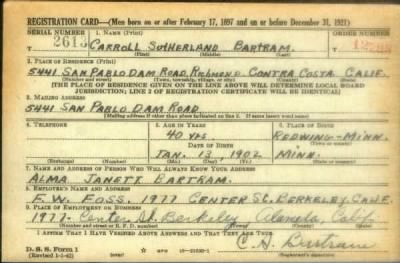 REGISTRATION CARD—(Men born on or after February 17, 1897 and on or before December 31, 1921)
SERIAL NUMBER 1. NAME (Print) ORDER NUMBER
2613 CARROLL SUTHERLAND BARTRAM.
(First) (Middle) (Last)
2. PLACE OF RESIDENCE (Print)
5441 SAN PABLO DAM ROAD, RICHMOND CONTRA COSTA CALIF.
(Number and street) (Town, township, village, or city) (County) (State)
[THE PLACE OF RESIDENCE GIVEN ON THE LINE ABOVE WILL DETERMINE LOCAL BOARD
JURISDICTION; LINE 2 OF REGISTRATION CERTIFICATE WILL BE IDENTICAL]
3. MAILING ADDRESS
5441 SAN PABLO DAM ROAD
[Mailing address if other than place indicated on line 2. If same insert word same]
4. TELEPHONE 5. AGE IN YEARS 6. PLACE OF BIRTH
40 YRS REDWING-MINN.
DATE OF BIRTH (Town or county)
JAN. 13, 1902 MINN.
(Exchange) (Number) (Mo.) (Day) (Yr.) (State or country)
7. NAME AND ADDRESS OF PERSON WHO WILL ALWAYS KNOW YOUR ADDRESS
ALMA JANETT BARTRAM.
8. EMPLOYER'S NAME AND ADDRESS
F. W. FOSS. 1977 CENTER ST. BERKELEY, CALIF
9. PLACE OF EMPLOYMENT OR BUSINESS
1977- Center St. Berkeley Alameda, Calif.
(Number and street or R. F. D. number) (Town) (County) (State)
I AFFIRM THAT I HAVE VERIFIED ABOVE ANSWERS AND THAT THEY ARE TRUE.
D. S. S. Form 1
(Revised 1-1-42) (over) C. S. Bartram
(Registrant's signature)